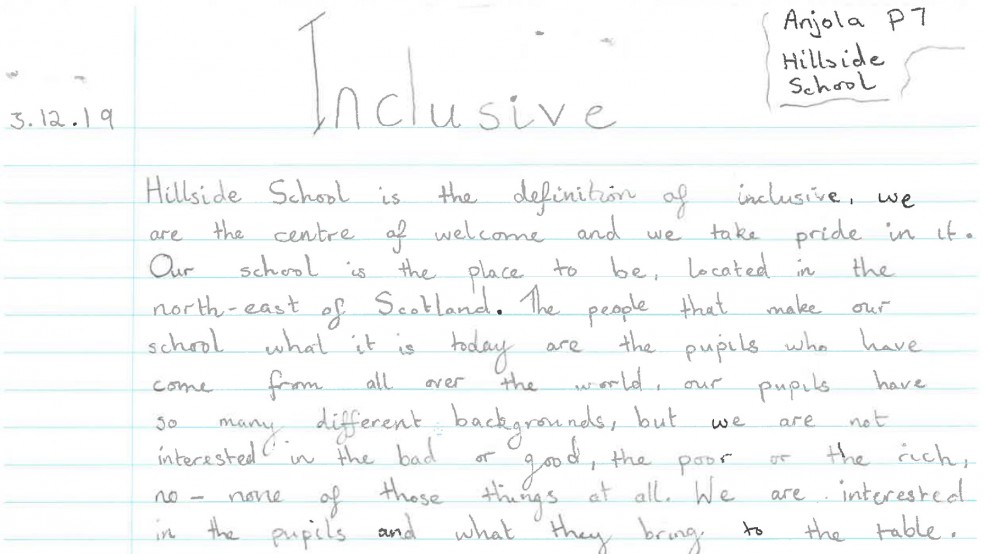 Anjola P7
Hillside
School
3.12.19
Inclusive
Hillside School is the definition of inclusive, we
are the centre of welcome and we take pride in it.
Our school is the place to be, located in the
north-east of Scotland. The people that make our
school what it is today are the pupils who have
come from all over the world, our pupils have
so many different backgrounds, but we are not
interested in the bad or good, the poor or the rich,
no - none of those things at all. We are interested
in the pupils and what they bring to the table.